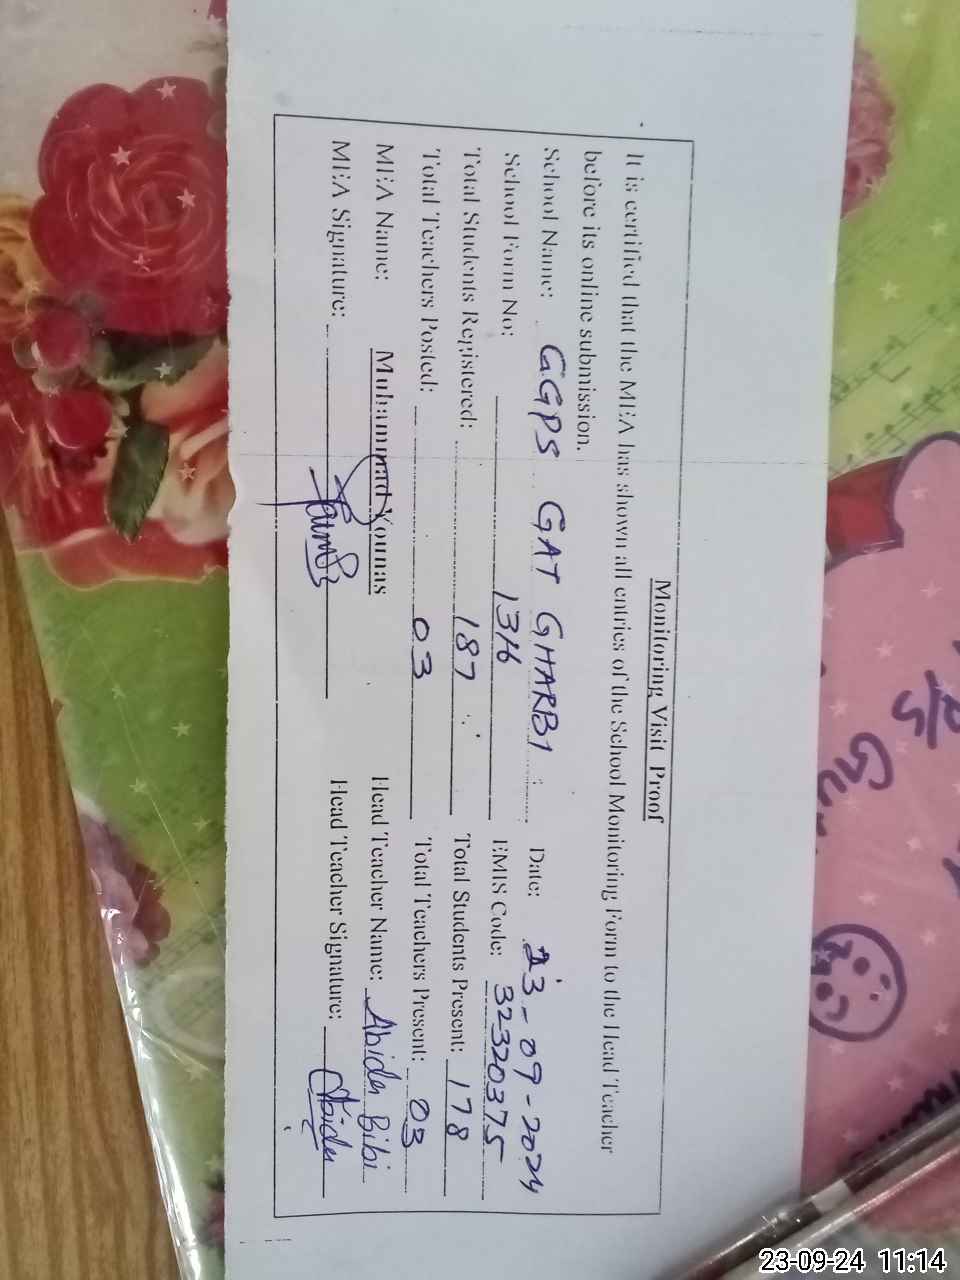 Monitoring Visit Proof
It is certified that the MEA has shown all entries of the School Monitoring Form to the Head Teacher
before its online submission.
School Name: GGPS GAT GHARBI Date: 23-09-2024
School Form No: 1316 EMIS Code: 32320375
Total Students Registered: 187 Total Students Present: 178
Total Teachers Posted: 03 Total Teachers Present: 03
MEA Name: Muhammad Younas Head Teacher Name: Abida Bibi
MEA Signature: Head Teacher Signature: Abida
23-09-24 11:14